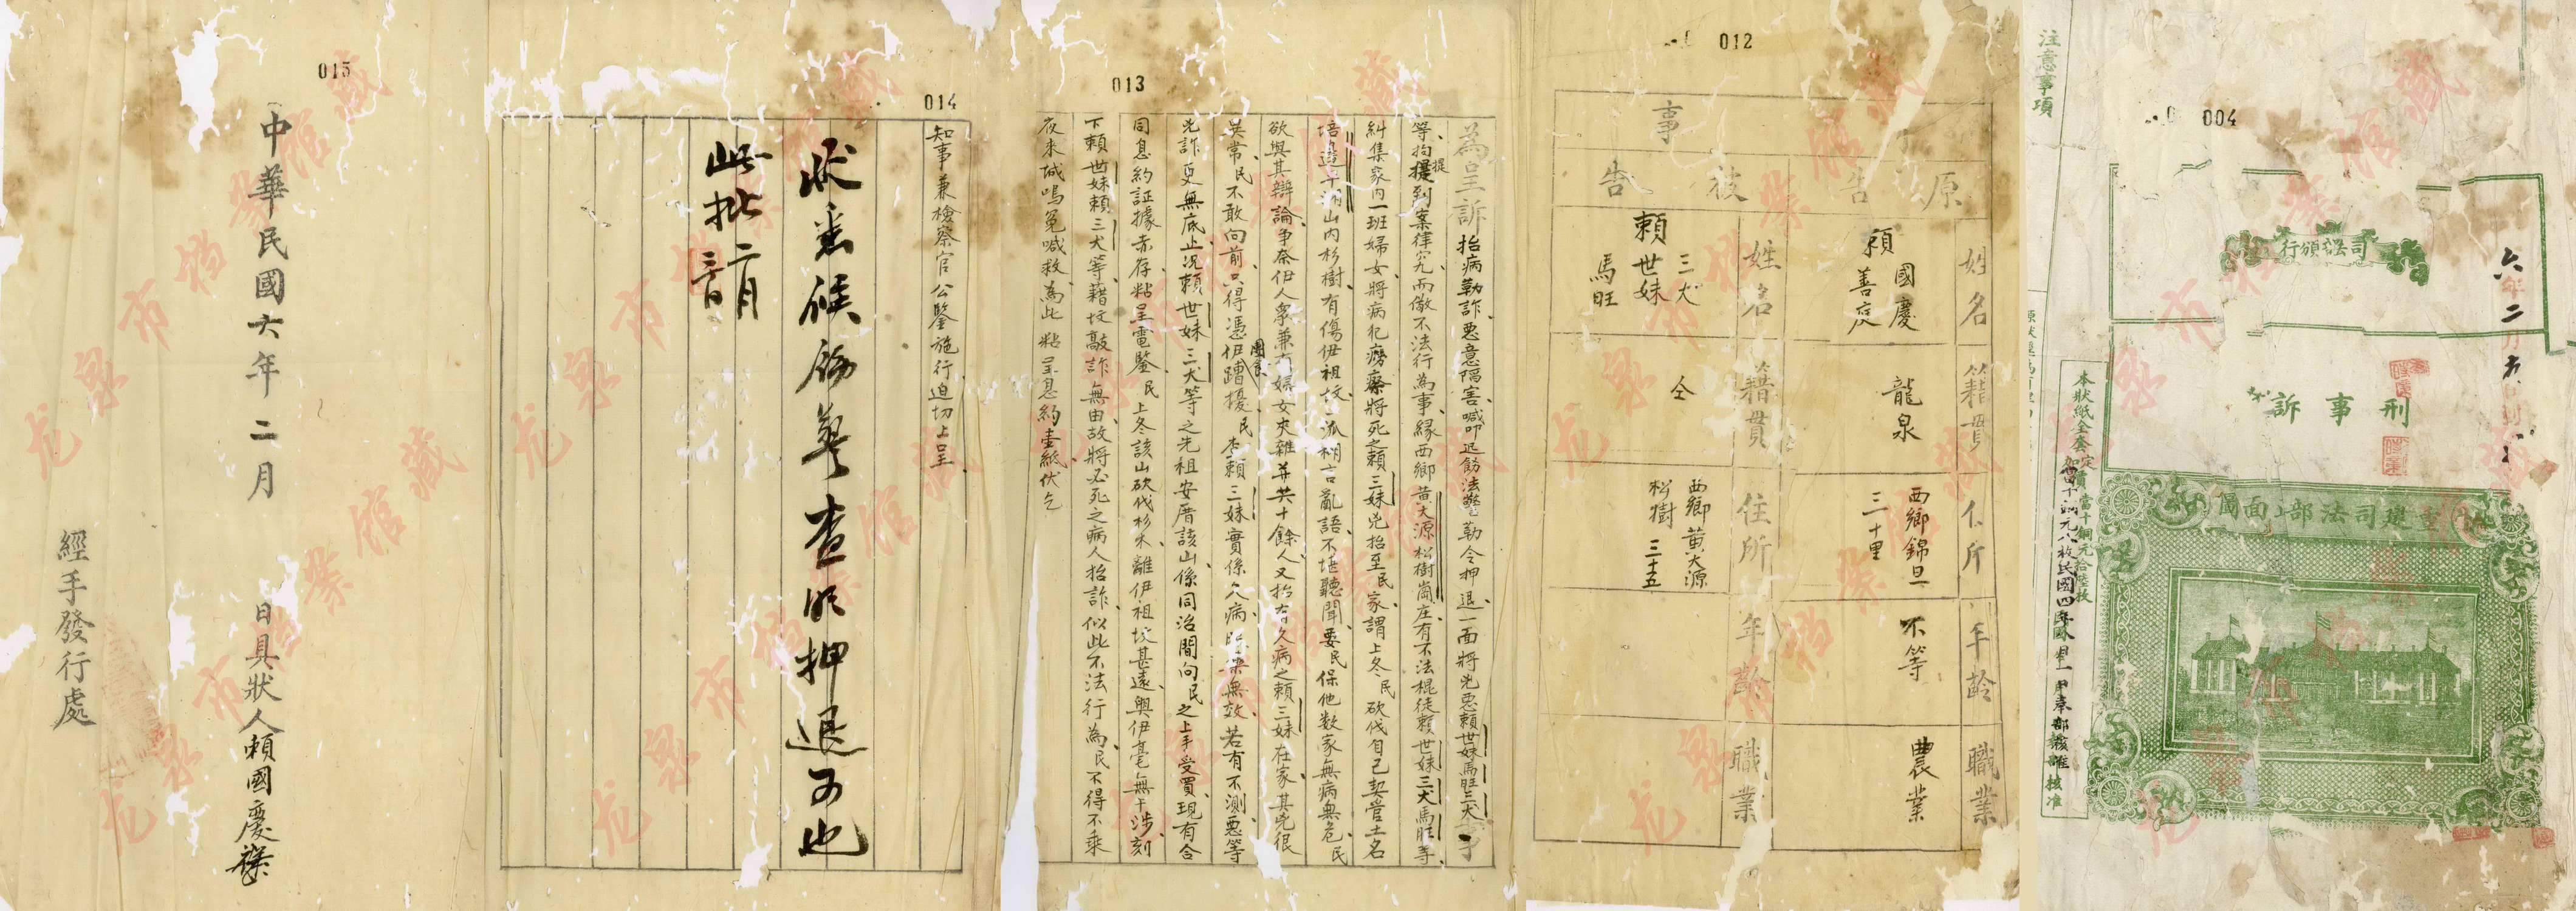 注意事項
004
司法部頒行
六年二月
刑事訴
重建司法部正面圖
本狀紙全套定價當十銅元拾陸枚
012
事
原告
被告
姓名
籍貫
住所
年齡
職業
賴
國慶
善慶
龍泉
西鄉錦旦
三十里
不等
農業
姓名
籍貫
住所
年齡
職業
賴
三犬
世妹
馬旺
仝
西鄉黃大源
松樹
三十五
013
為呈訴抬病勒詐惡意隔害喊叩迅飭法警勒令押退一面將兇惡賴世妹馬旺三犬事
等拘提到案律究而儆不法行為事緣西鄉黃大源松樹崗庄有不法棍徒賴世妹三犬馬旺等
糾集家內一班婦女將病犯癆瘵將死之賴三妹兇抬至民家謂上冬民砍伐自己契管土名
山內杉樹有傷伊祖坟一派糊言亂語不堪聽聞要民保他数家無病無危民
欲與其辯論爭奈伊人衆兼有婦女夾雜並共十餘人又抬有久病之賴三妹在家其兇很
異常民不敢向前只得憑伊團食蹧擾民本賴三妹實係久病無效若有不測惡等
兇詐更無底止况賴世妹三犬等之先祖安厝該山係同治間向民之上手受買現有合
同息約証據赤存粘呈電鑒民上冬該山砍伐杉木離伊祖坟甚遠與伊毫無干涉刻
下賴世妹賴三犬等藉坟敲詐無由故將必死之病人抬詐似此不法行為民不得不乘
夜來城鳴冤喊救為此粘呈息約壹紙伏乞
014
知事兼檢察官公鑒施行迫切上呈
狀悉候飭警查明押退可也
此批二月
015
中華民國六年二月 日具狀人賴國慶
經手發行處
龙泉市档案馆藏